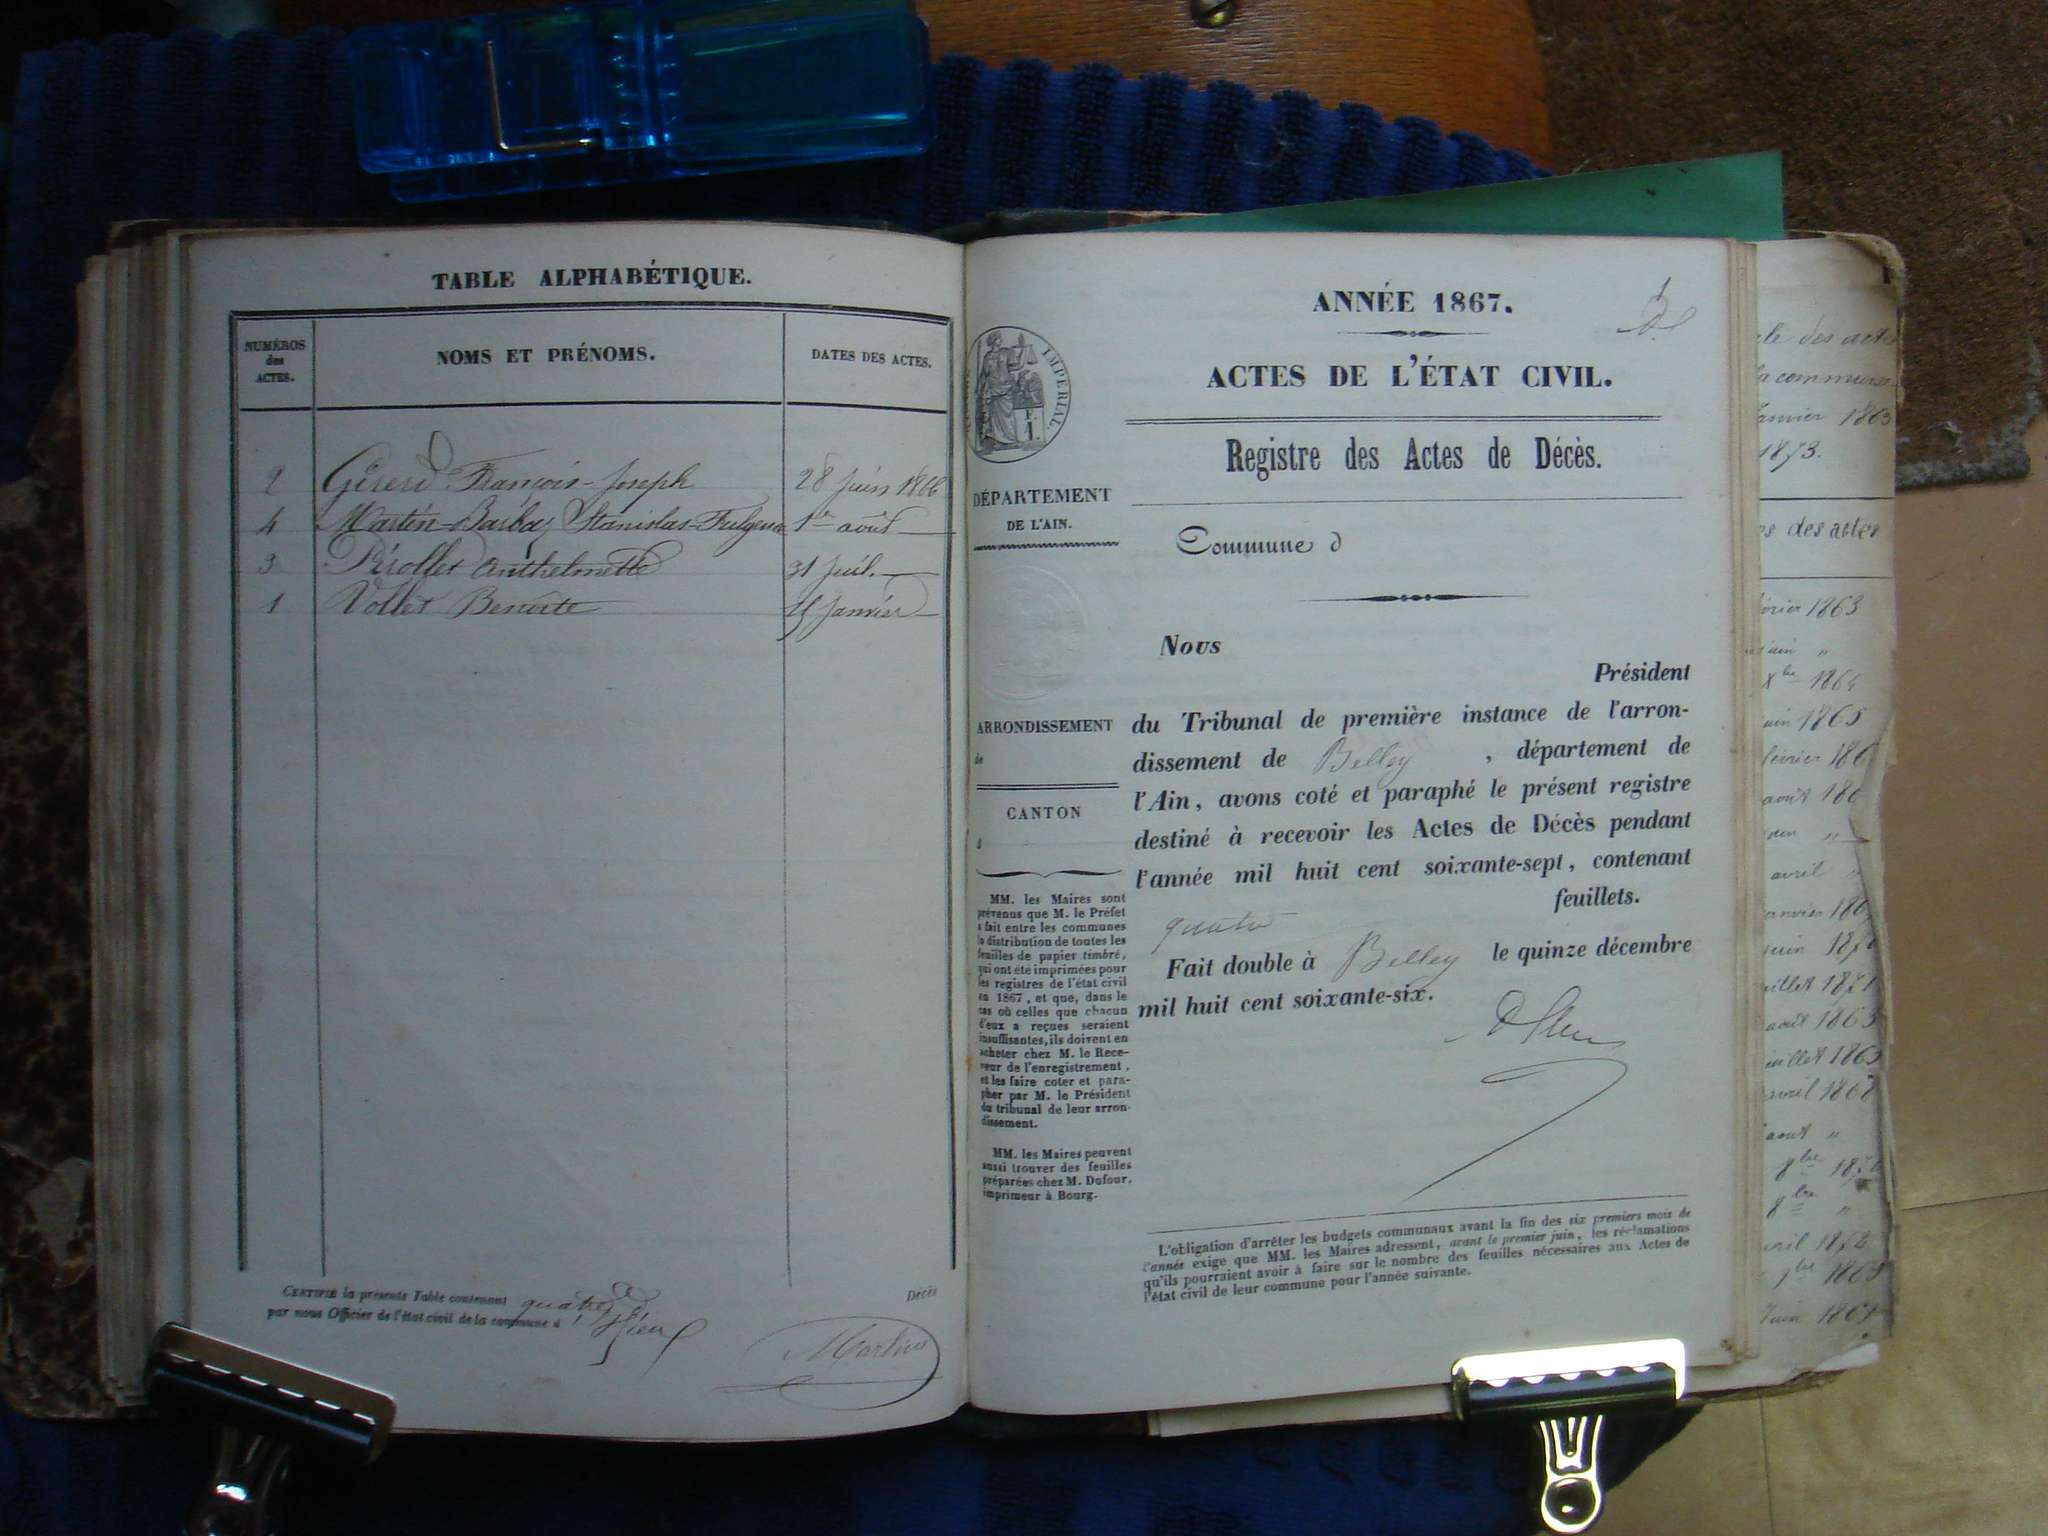 TABLE ALPHABÉTIQUE.
NUMÉROS des ACTES.
NOMS ET PRÉNOMS.
DATES DES ACTES.
2 Girerd François-Joseph 28 juin 1866
4 Martin-Barbaz Stanislas-Fulgence 1er août
3 Pérollet Anthelmette 31 juil.
1 Vollet Benoite janvier
CERTIFIÉ la présente Table contenant quatre
par nous Officier de l'état civil de la commune d
Décès
Martin
ANNÉE 1867.
ACTES DE L'ÉTAT CIVIL.
Registre des Actes de Décès.
IMPÉRIAL.
DÉPARTEMENT
DE L'AIN.
Commune d
ARRONDISSEMENT
de
CANTON
d
MM. les Maires sont
prévenus que M. le Préfet
a fait entre les communes
la distribution de toutes les
feuilles de papier timbré,
qui ont été imprimées pour
les registres de l'état civil
en 1867, et que, dans le
cas où celles que chacun
d'eux a reçues seraient
insuffisantes, ils doivent en
acheter chez M. le Rece-
veur de l'enregistrement,
et les faire coter et para-
pher par M. le Président
du tribunal de leur arron-
dissement.
MM. les Maires peuvent
aussi trouver des feuilles
préparées chez M. Dufour,
imprimeur à Bourg.
Nous
Président
du Tribunal de première instance de l'arron-
dissement de Belley, département de
l'Ain, avons coté et paraphé le présent registre
destiné à recevoir les Actes de Décès pendant
l'année mil huit cent soixante-sept, contenant
quatre feuillets.
Fait double à Belley le quinze décembre
mil huit cent soixante-six.
L'obligation d'arrêter les budgets communaux avant la fin des six premiers mois de
l'année exige que MM. les Maires adressent, avant le premier juin, les réclamations
qu'ils pourraient avoir à faire sur le nombre des feuilles nécessaires aux Actes de
l'état civil de leur commune pour l'année suivante.
des actes
la commune
janvier 1863
1873.
des actes
février 1863
juin "
Xbre 1864
juin 1865
février 186
août 186
"
avril "
janvier 186
juin 187
juillet 1871
août 1863
juillet 1865
avril 1868
août "
8bre 187
9bre "
avril 1872
9bre 1863
juin 1867